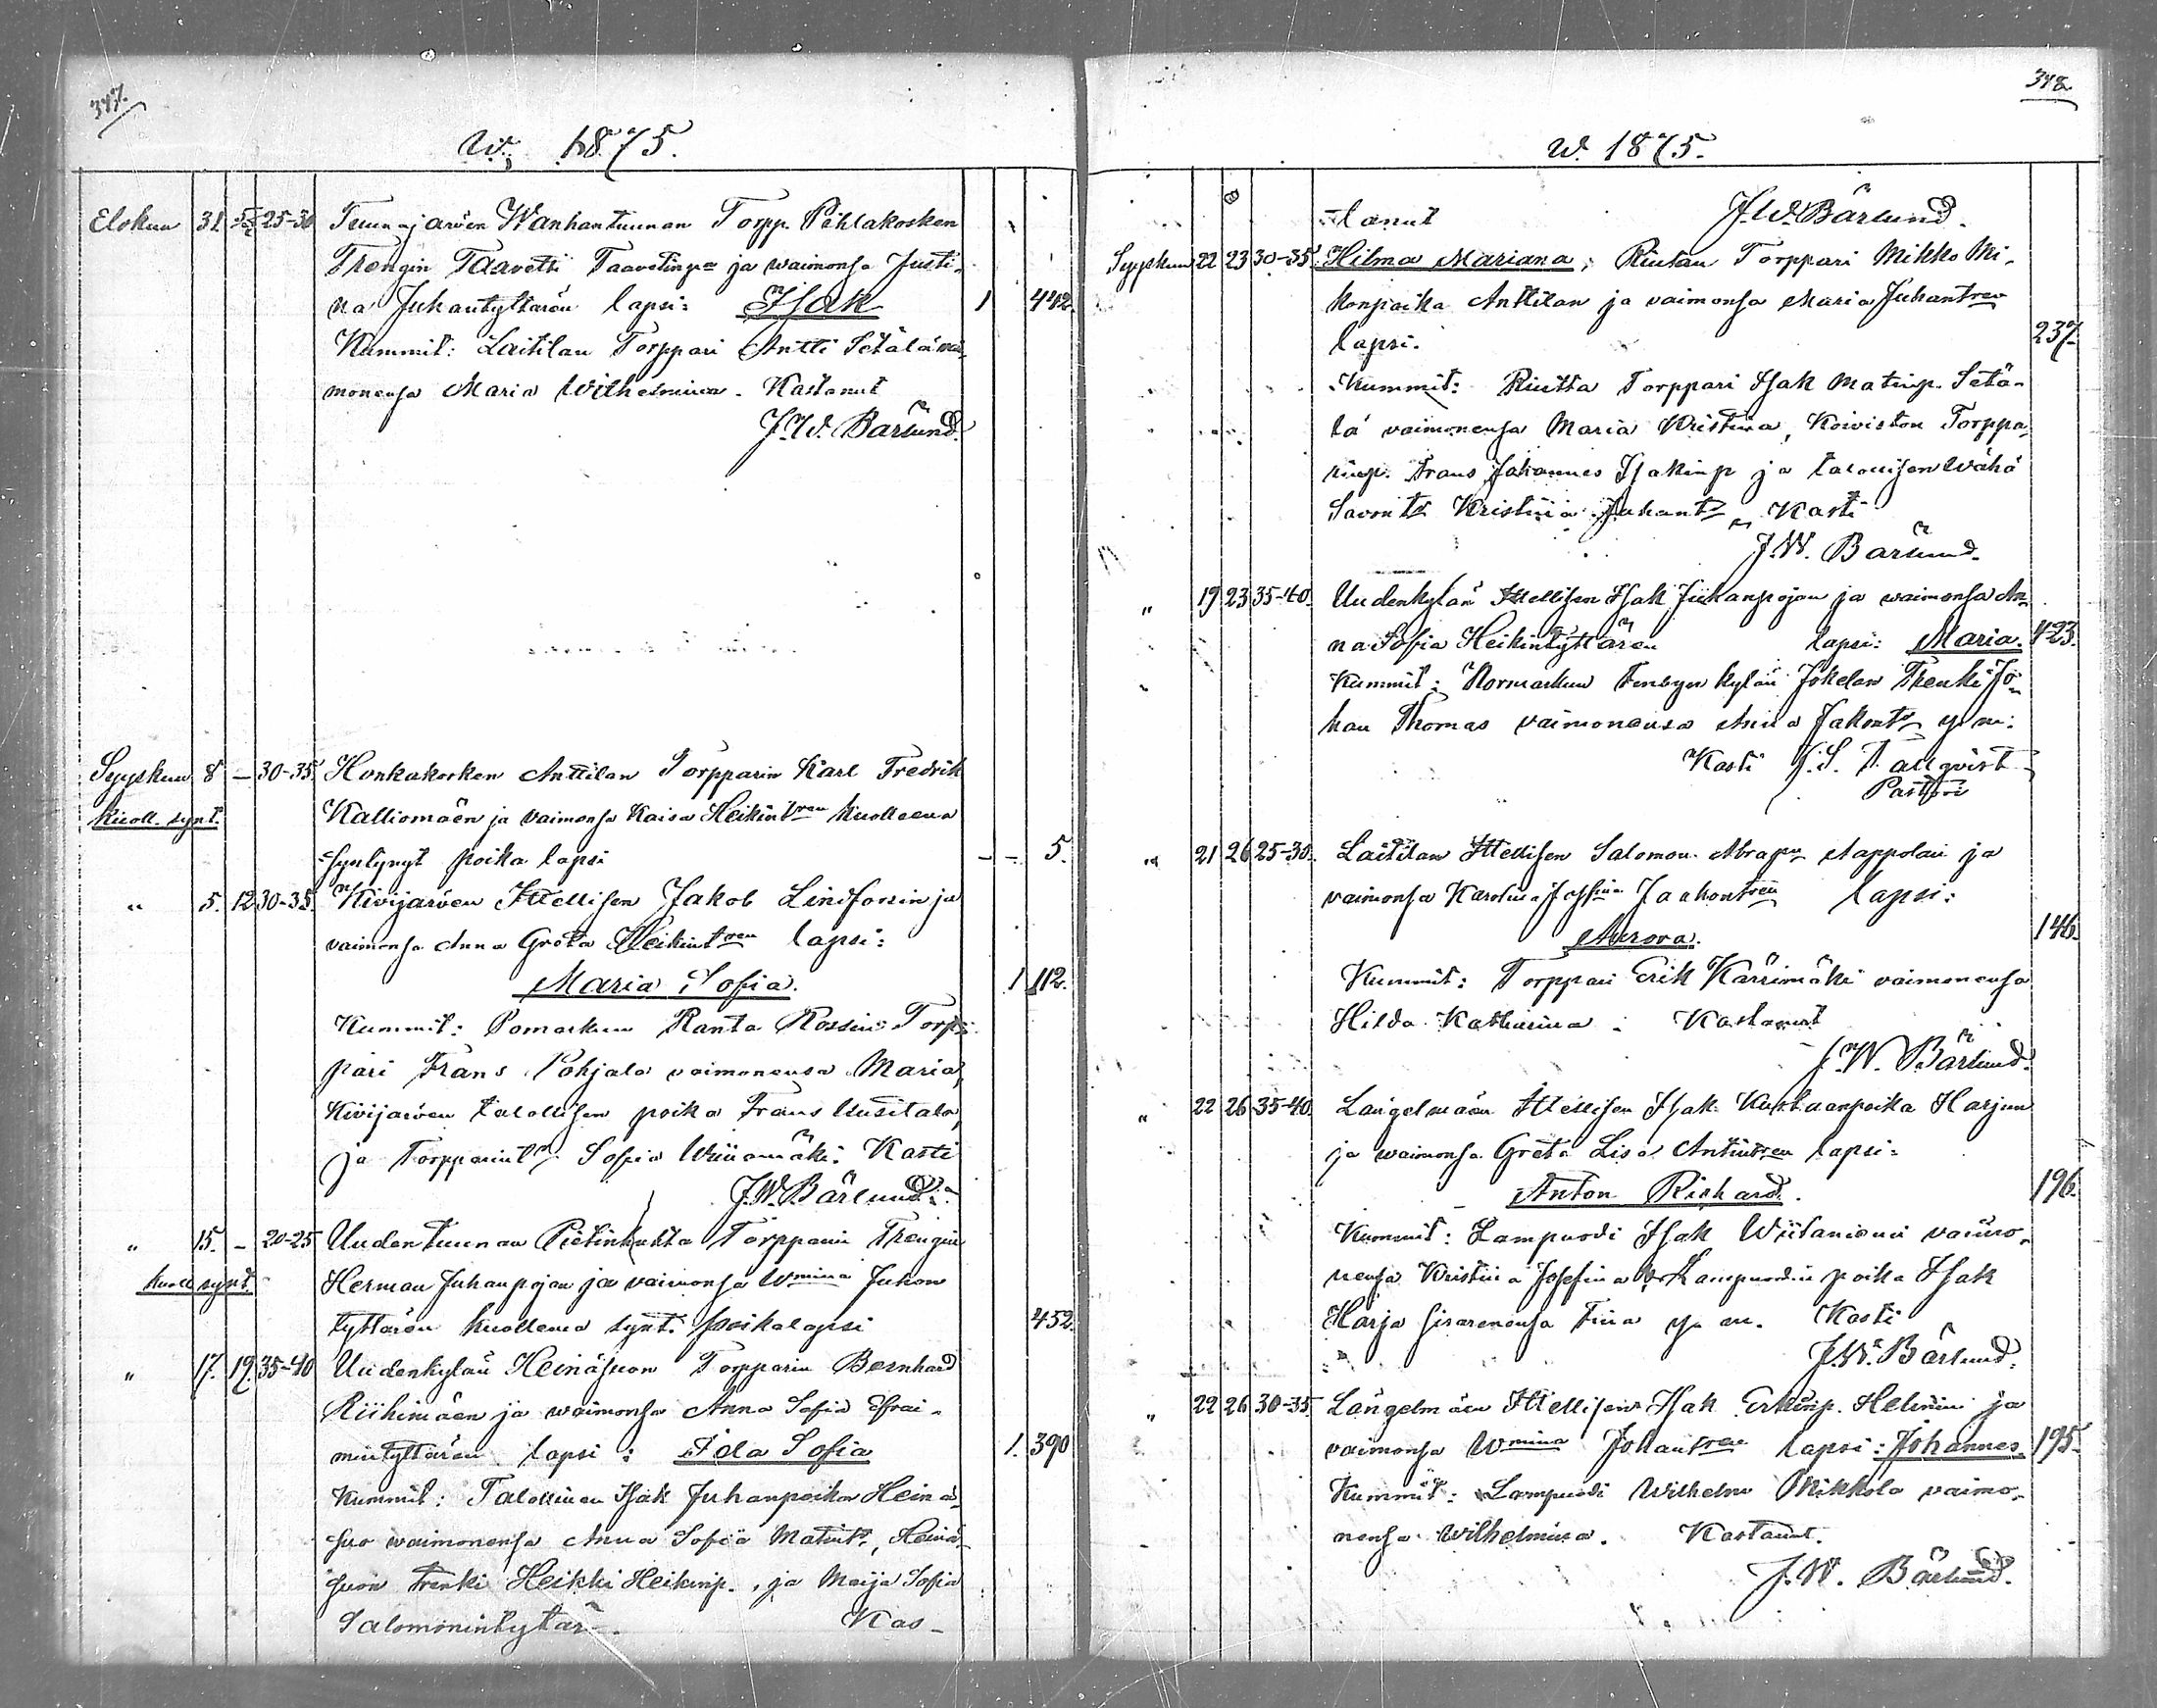 347.
W. 1875.
Elokuu 31 5/9 25-30 Tuunajärven Wanhantuunan Torpp. Pihlakosken
Trengin Taavetti Taavetinp. ja waimonsa Justi-
na Juhantyttären lapsi: Isak 1 442.
Kummit: Laitilan Torppari Antti Setälä wai-
monensa Maria Wilhelmiina. Kastanut
J.W. Bärlund.
Syyskuu 8 — 30-35 Honkakosken Anttilan Torpparin Karl Fredrik
kuoll. synt. Kalliomäen ja vaimonsa Kaisa Heikintren kuolleena
syntynyt poika lapsi - - 5.
" 5. 12 30-35. Kivijärven Itsellisen Jakob Lindforsin ja
vaimonsa Anna Greta Heikintren lapsi:
Maria Sofia. 1 112.
Kummit: Pomarkun Ranta Rossin Torp-
pari Frans Pohjala vaimonensa Maria,
Kivijärven talollisen poika Frans Uusitalo,
ja Torpparint. Sofia Wiiamäki. Kasti
J.W. Bärlund.
" 15. - 20-25 Uudentuunan Pietinhuhta Torpparin Trengin
kuoll synt. Herman Juhanpojan ja vaimonsa Wmina Juhon
tyttären kuolleena synt. poikalapsi 452.
" 17. 19. 35-40 Uudenkylän Heinäsuon Torpparin Bernhard
Riihimäen ja waimonsa Anna Sofia Efrai-
mintyttären lapsi: Ida Sofia 1. 390
Kummit: Talollinen Isak Juhanpoika Heinä-
suo waimonensa Anna Sofia Matint., Heinä-
suon trenki Heikki Heikinp., ja Maija Sofia
Salomonintytär. Kas-
348.
W. 1875.
tanut J.W. Bärlund.
Syyskuu 22 23 30-35 Hilma Mariana, Riutan Torppari Mikko Mi-
konpoika Anttilan ja vaimonsa Maria Juhantren
lapsi. 237.
Kummit: Riutta Torppari Isak Matinp. Setä-
lä vaimonensa Maria Kristiina, Koiviston Torppa-
rinp. Frans Johannes Isakinp ja talollisen Wähä
Savon tr Kristiina Juhantr Kasti
J.W. Bärlund.
" 19 23 35-40. Uudenkylän Itsellisen Isak Juhanpojan ja waimonsa An-
na Sofia Heikintyttären lapsi: Maria. 423.
Kummit: Normarkun kylän Jokelan Trenki Jo-
han Thomas vaimonensa Anna Jakontr y. m.
Kasti J. S. Tallqvist
Pastori
" 21 26 25-30. Laitilan Itsellisen Salomon Abrap. Nappolan ja
vaimonsa Karolina Josfiina Jaakontren lapsi:
Aurora. 146.
Kummit: Torppari Erik Kärrimäki vaimonensa
Hilda Katharina. Kastanut
J.W. Bärlund.
" 22 26 35-40. Längelmään Itsellisen Isak Kustaanpoika Harjun
ja waimonsa Greta Lisa Antintren lapsi:
Anton Richard. 196.
Kummit: Lampuodi Isak Wiitaniemi vaimo-
nensa Kristiina Josefina, Lampuodin poika Isak
Harju sisarenensa Tiina y. m. Kasti
J.W. Bärlund.
" 22 26 30-35. Längelmään Itsellisen Isak Erkinp. Helinin ja
vaimonsa Wmina Johantren lapsi: Johannes. 195.
Kummit: Lampuodi Wilhelm Mikkola vaimo-
nensa Wilhelmiina. Kastanut.
J.W. Bärlund.